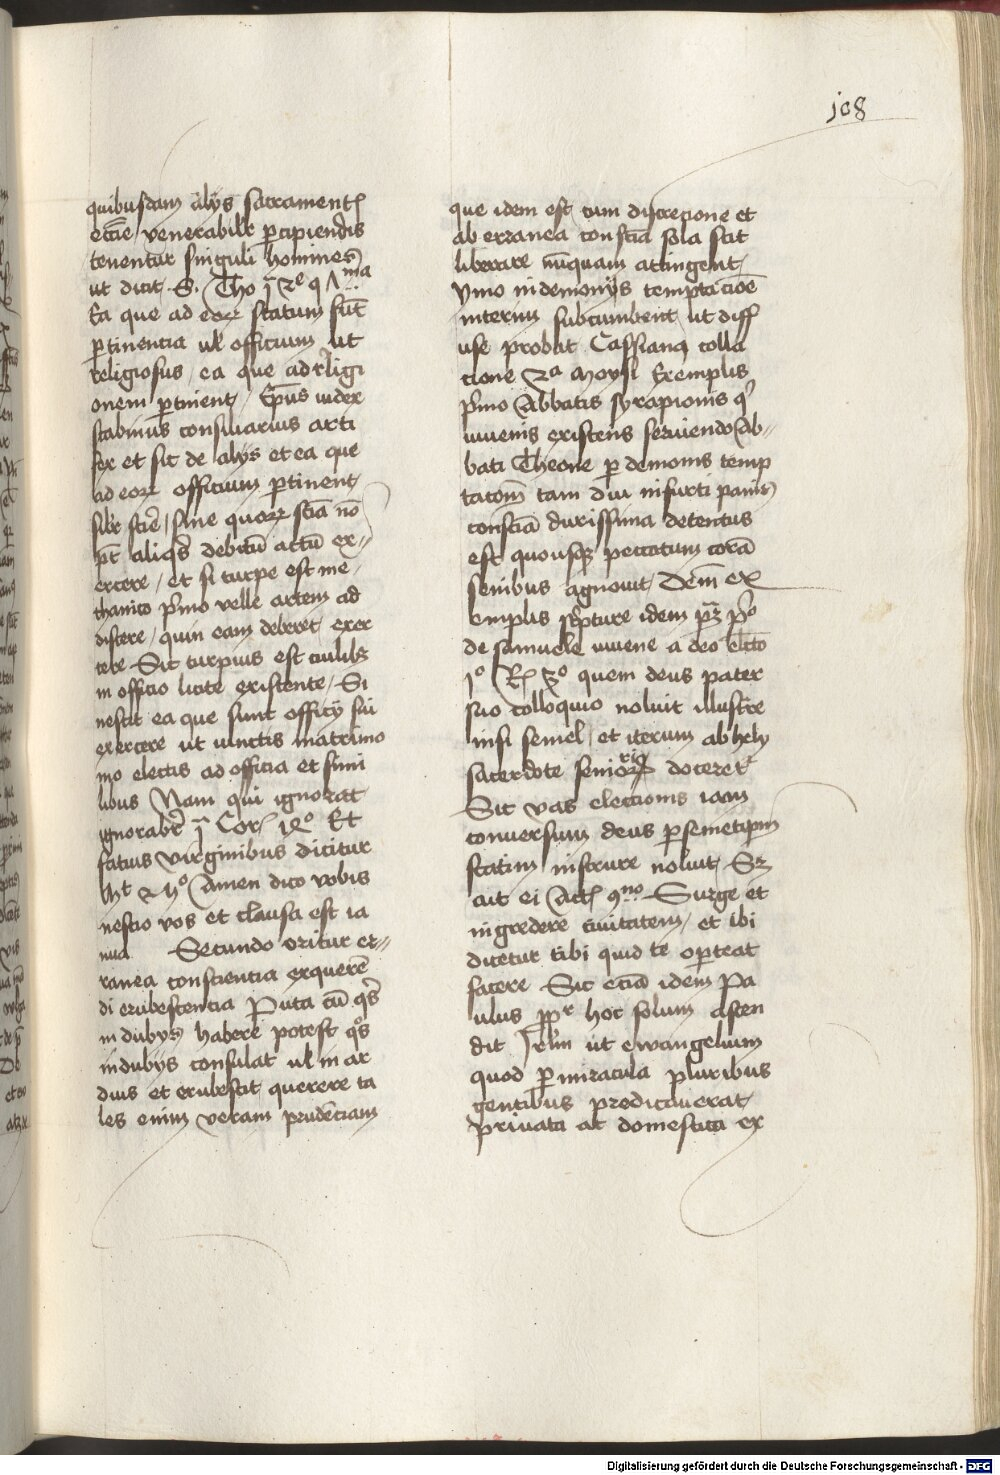 108
quibusdam alijs sacrament
eccie venerabilr ꝑcipiendis
tenentur singuli homines
ut dicit S. Tho
Ea que ad eoꝝ statum sūt
ꝑtinentia ul officium ut
religiosus ea que ad religi
onem ꝑtinent Epūs iudex
scabinus consiliarius arti
fex et sic de alijs et ea que
ad eoꝝ officium ꝑtinent
silr scire sine quoꝝ scīa nō
pt̄ aliqs debitū actū ex//
ercere et si turpe est me
chanico pͥmo velle artem ad
discere quin eam deberet exer
cere Sic turpius est cuilibꝫ
in officio licite existente Si
nescit ea que sunt officij sui
exercere ut iunctis matrimo
nio electis ad officia et simi
libus Nam qui ignorat
ignorabr̄ Cor Et
fatuis virginibus dicitur
Mt 25º Amen dico vobis
nescio vos et clausa est ia
nua Secundo oritur er//
ranea conscientia ex querē
di erubescentia Puta cū qͥs
in dubijs habere potest qͦs
in dubijs consulat ul in ar
duis et erubescit querere ta
les enim veram prudēciam
que idem est cum discrecione et
ab erranea conscīa sola scit
liberare nūquam attingent
ymo in demonijs temptacōe
interim subcumbent ut diff
use probat Cassianꝯ colla
cione 2a Moysi Exemplis
pͥmo Abbatis syrapionis qͥ
iuuenis existens seruiendo Ab//
bati Theone ꝑ demonis temp
tacōm tam diu in furti panis
conscīa durissima detentus
est quousqꝫ peccatum corā
senibus agnouit Deīn ex
emplis sc̓pture idem
de samuele iuuene a deo elc̄to
1º R 3º quem deus pater
suo colloquio noluit illustre
nisi semel et iterum ab hely
sacerdote senior doceret
Sic vas electionis iam
conuersum deus ꝑ semetip̄m
statim instruere noluit Sꝫ
ait ei Act 9no Surge et
ingredere ciuitatem et ibi
dicetur tibi quid te oꝑteat
facere Sic eciā idem Pa
ulus ppr̄ hoc solum ascen
dit Jrlm̄ ut ewangelium
quod ꝑ miracula pluribus
gentibus predicauerat
priuata ac domestica ex
Digitalisierung gefördert durch die Deutsche Forschungsgemeinschaft - DFG